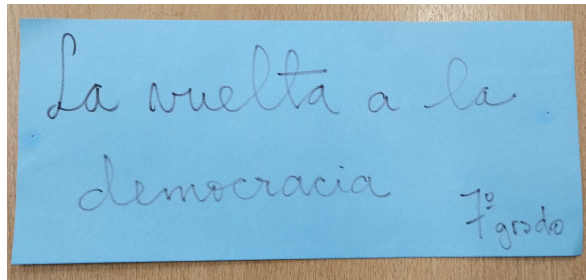 La vuelta a la
democracia
7º grado